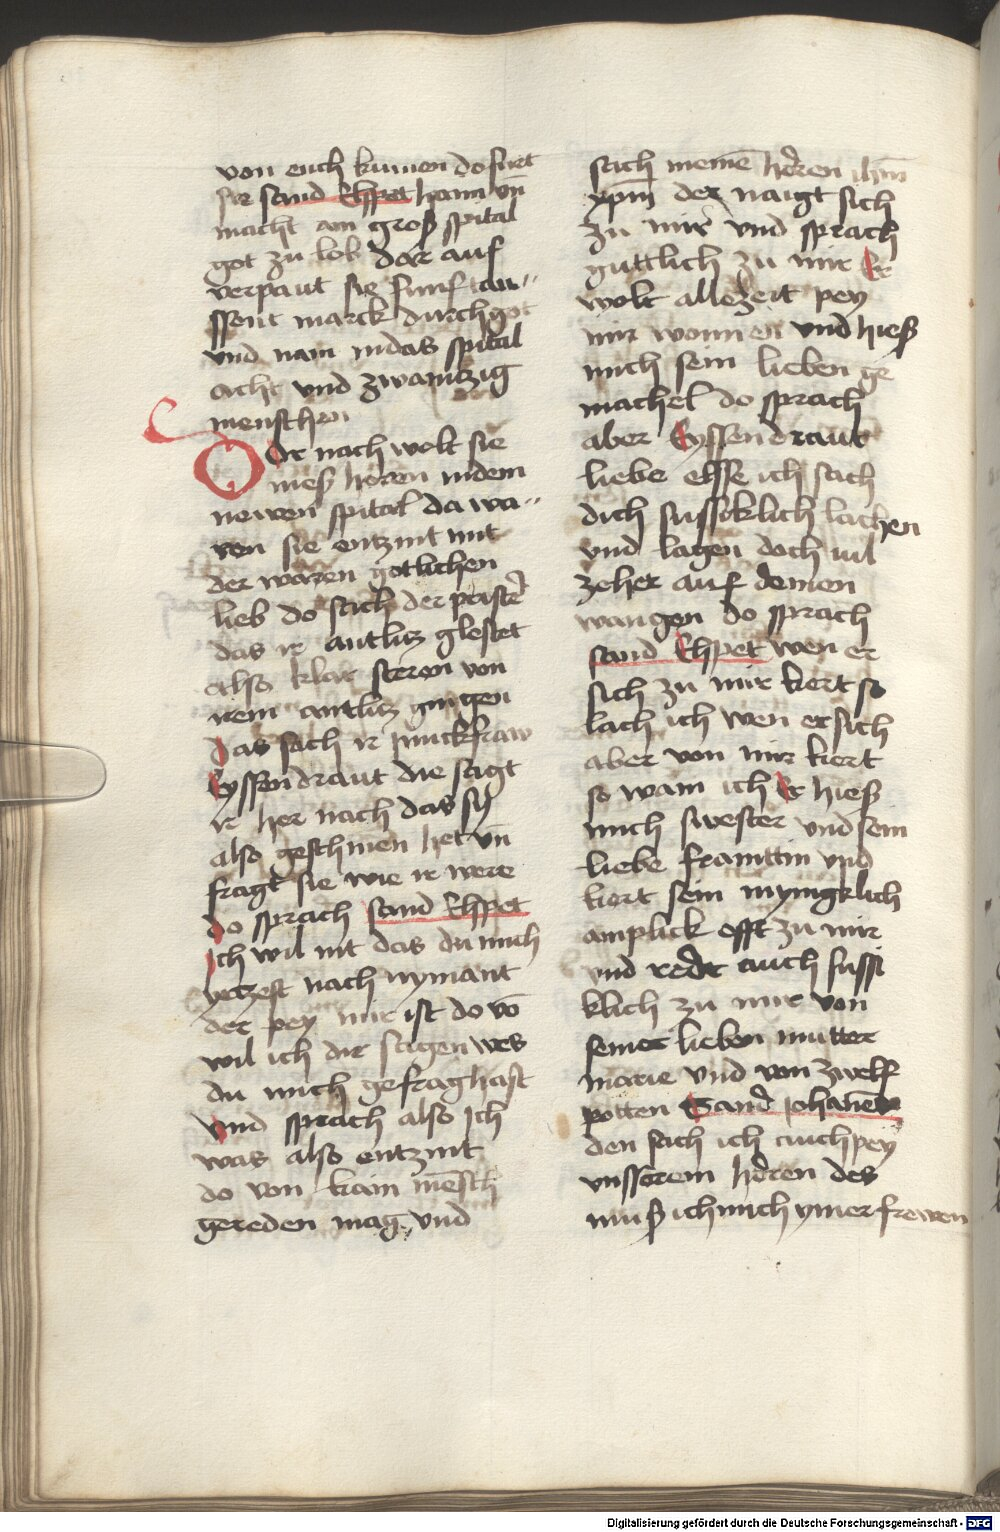 von euch kumen do furt
sie sand Elspet haim vn̄
macht ain groß spital
got zu lob dar auf
verpaut sie funf tau-
ssent marck durch got
vnd nam in das spital
acht vnd zwaintzig
menschen
Dar nach wolt sie
meß horen in dem
newen spital da wa-
ren sie entzint mit
der waren gotlichen
lieb do sach der prister
das ir antlitz glestet
also klar steren von
irem antlitz gingen
das sach ir junckfraw
Eyssendraut die sagt
ir her nach das sy
also geschinen het vn̄
fragt sie wie ir were
do sprach sand Elspet
Ich wil nit das du mich
yetzest nach nymant
der pey mir ist do vō
wil ich dir sagen wes
du mich gefrag hast
vnd sprach also Ich
was also entzint
do von kain mēsch
gereden mag vnd
sach meinē herren ihm̄
xpm̄ der naigt sich
zu mir vnd sprach
guttlich zu mir Er
wolt allezeit pey
mir wonnen vnd hieß
mich sein lieben ge
machel do sprach
aber Eyssendraut
liebe elsse ich sach
dich susscklich lachen
vnd lagen doch vil
zeher auf deinen
wangen do sprach
sand Elspet wen er
sich zu mir kert so
lach ich wen er sich
aber von mir kert
so wain ich Er hieß
mich swester vnd sein
liebe framttin vnd
kert sein mynigklich
anplick offt zu mir
vnd redt auch sussi
klich zu mir von
seiner lieben mutter
marie vnd von zwelf
potten Sand johanēs
den sach ich auch pey
vnsserem herren des
muß ich mich ymer frewen
Digitalisierung gefördert durch die Deutsche Forschungsgemeinschaft - DFG